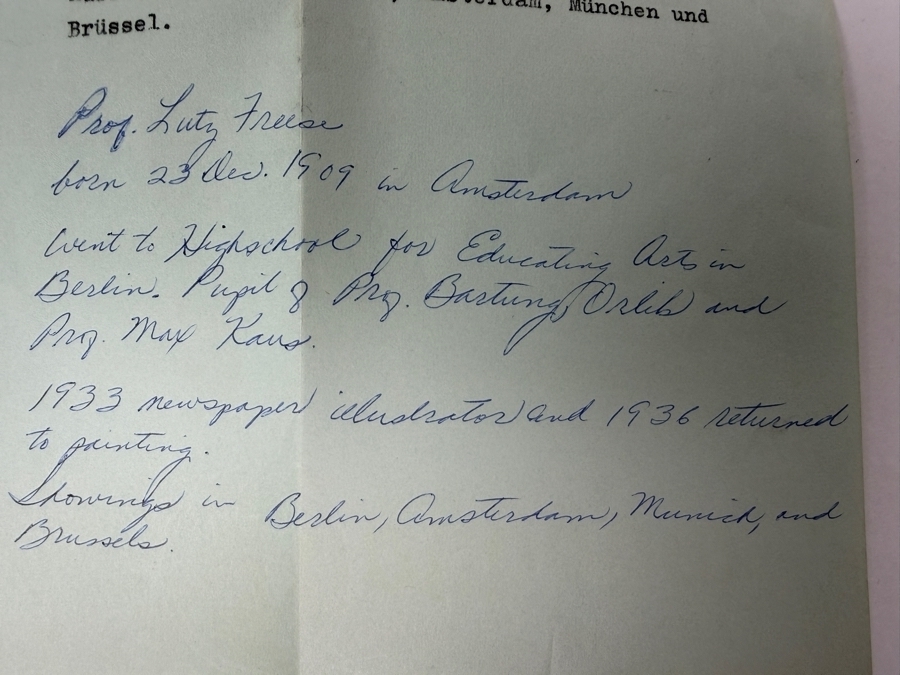 Amsterdam, München und
Brüssel.
Prof. Lutz Freese
born 23 Dec. 1909 in Amsterdam
Went to Highschool for Educating Arts in
Berlin. Pupil of Prof. Bartung, Orlib and
Prof. Max Kaus.
1933 newspaper illustrator and 1936 returned
to painting.
Showings in Berlin, Amsterdam, Munich, and
Brussels.